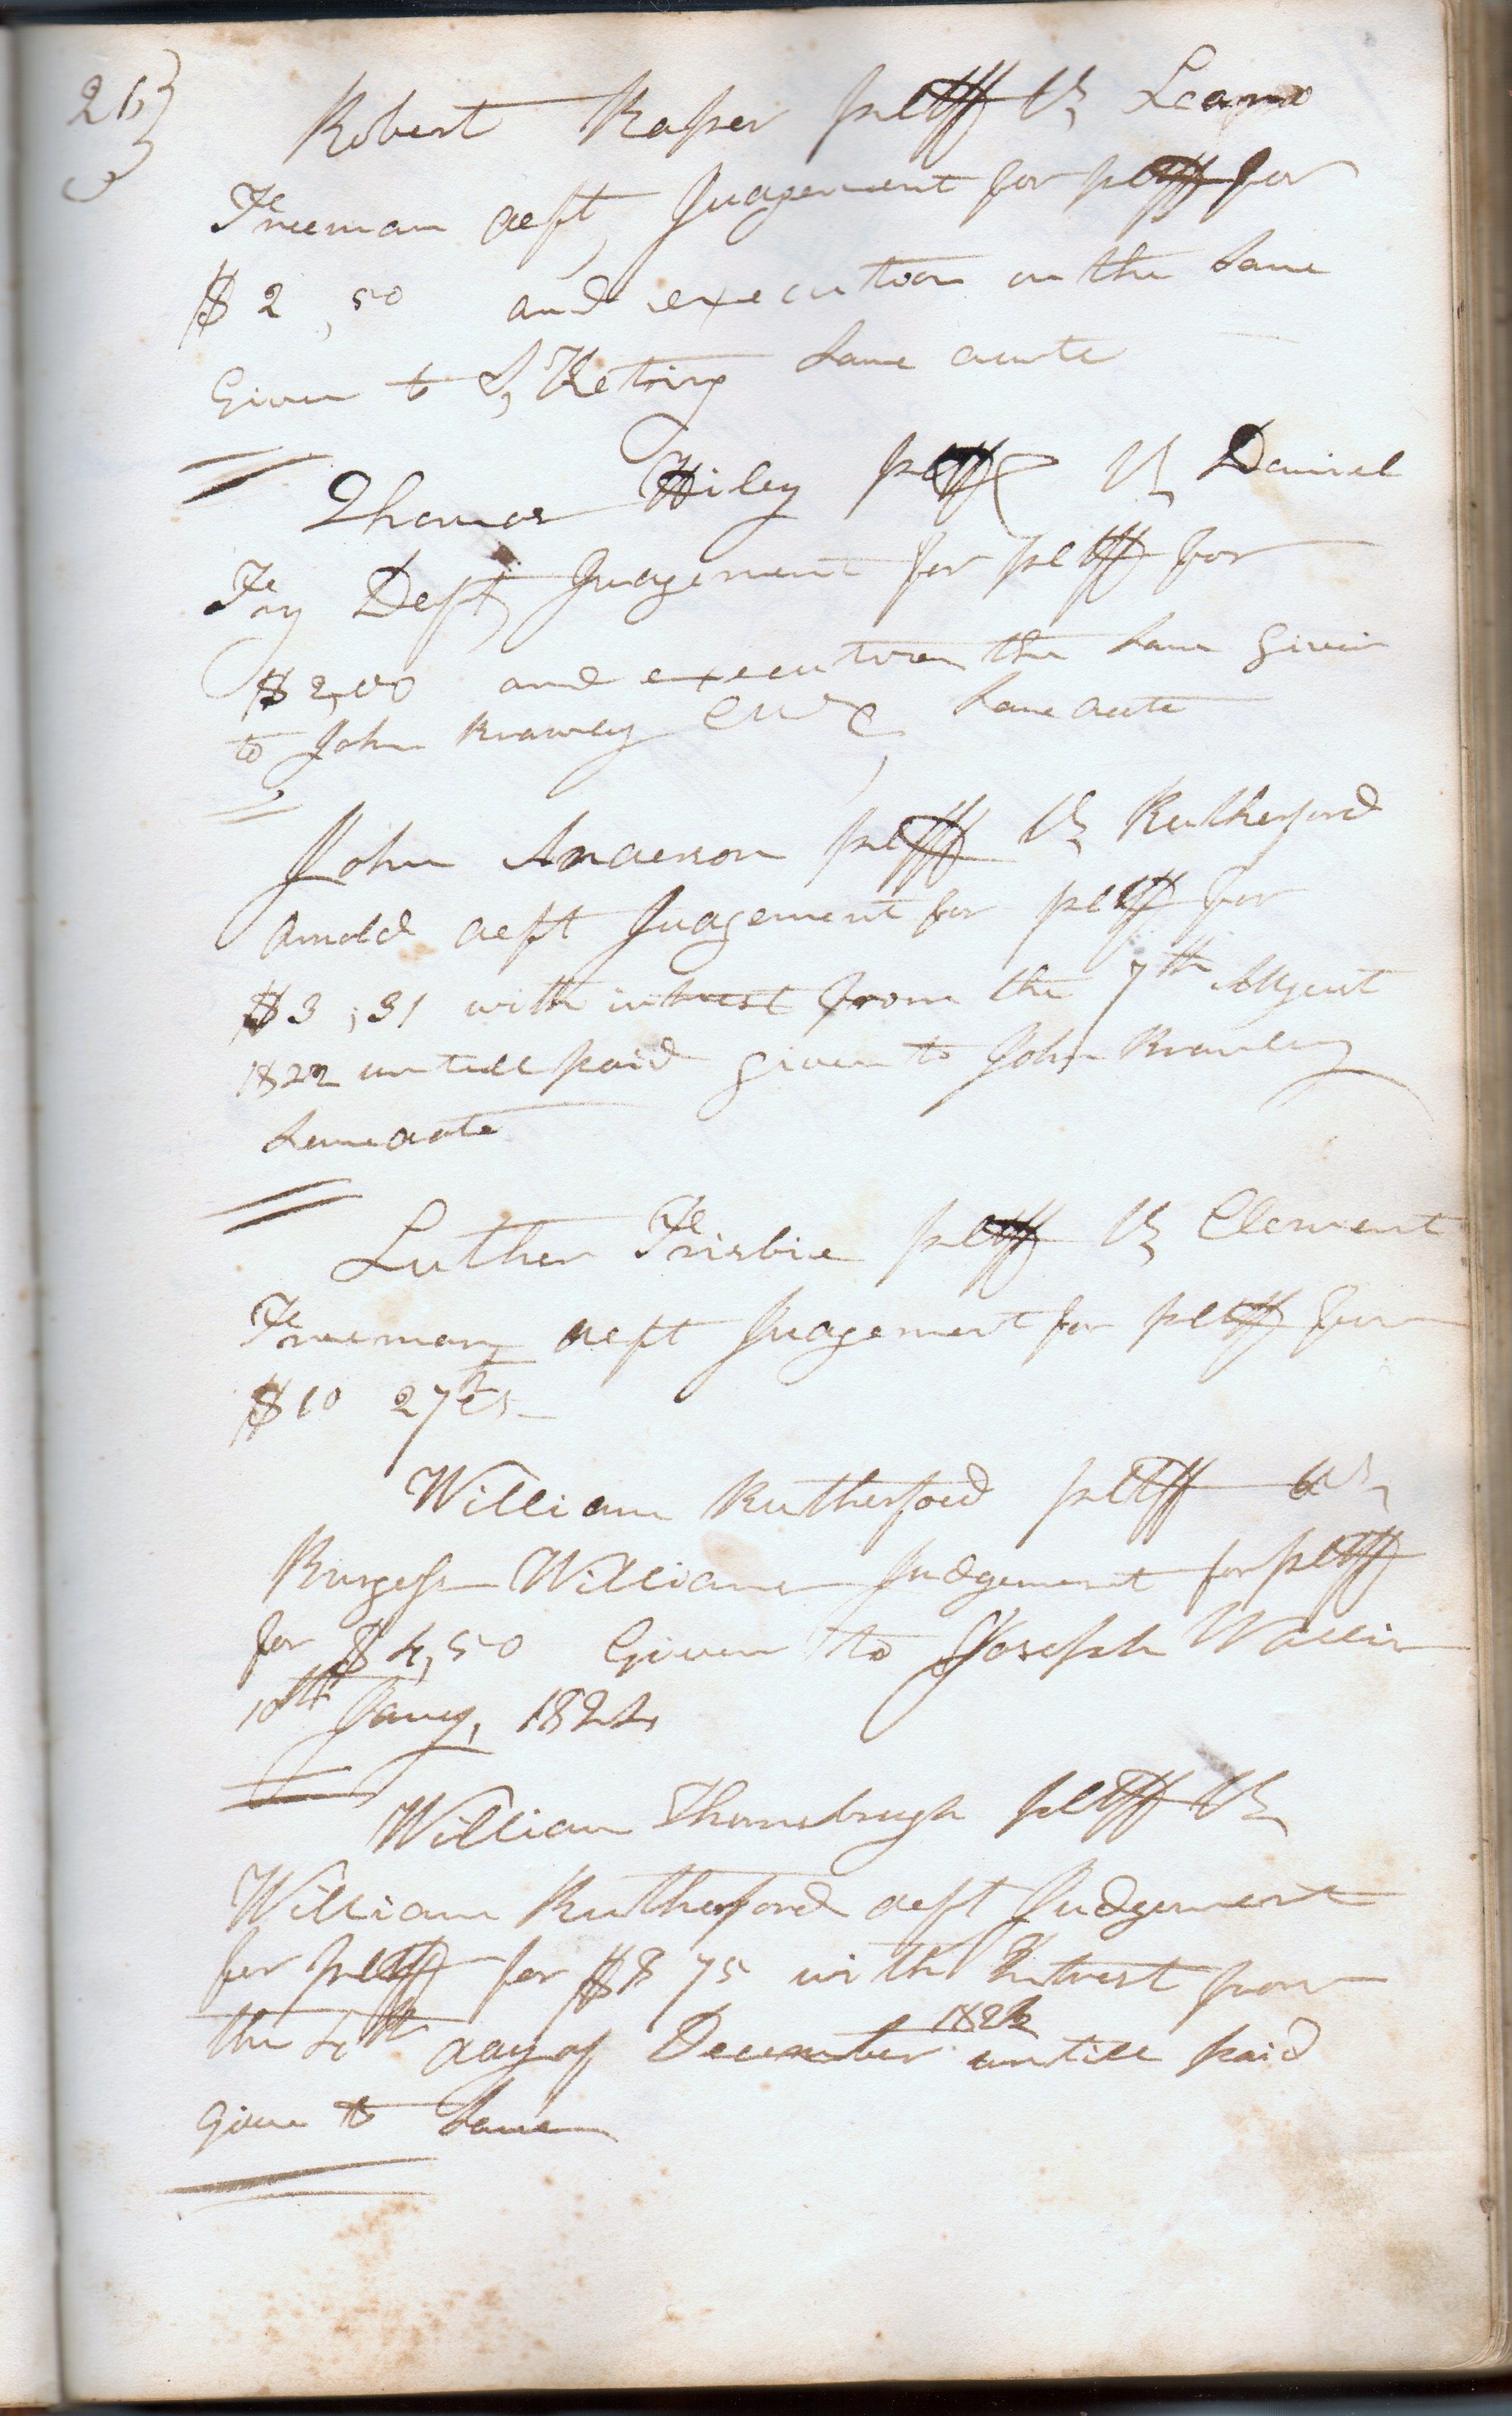 26
Robert Raper pltff vs
Freeman deft, Judgement for pltff for
$2,50 and execution on the Same
Given to S, Ketring Same date
Thomas Wiley pltff vs Daniel
Fry Deft, Judgement for pltff for
$2,00 and execution the Same Given
to John Brawley Same date
John Anderson pltff vs Rutherford
Arnold deft Judgement for pltff for
$3,31 with intrest from the 7th August
1822 untill paid given to John Brawley
Same date
Luther Frisbie pltff vs Clement
Freeman deft Judgement for pltff for
$10 27 cts
William Rutherford pltff vs
Burgess Williams Judgement for pltff
for $4,50 Given to Joseph Wallis
10th Jany, 1824
William Thornbrugh pltff vs
William Rutherford deft Judgement
for pltff for $8 75 with Intrest from
the day of December untill paid
given to Same